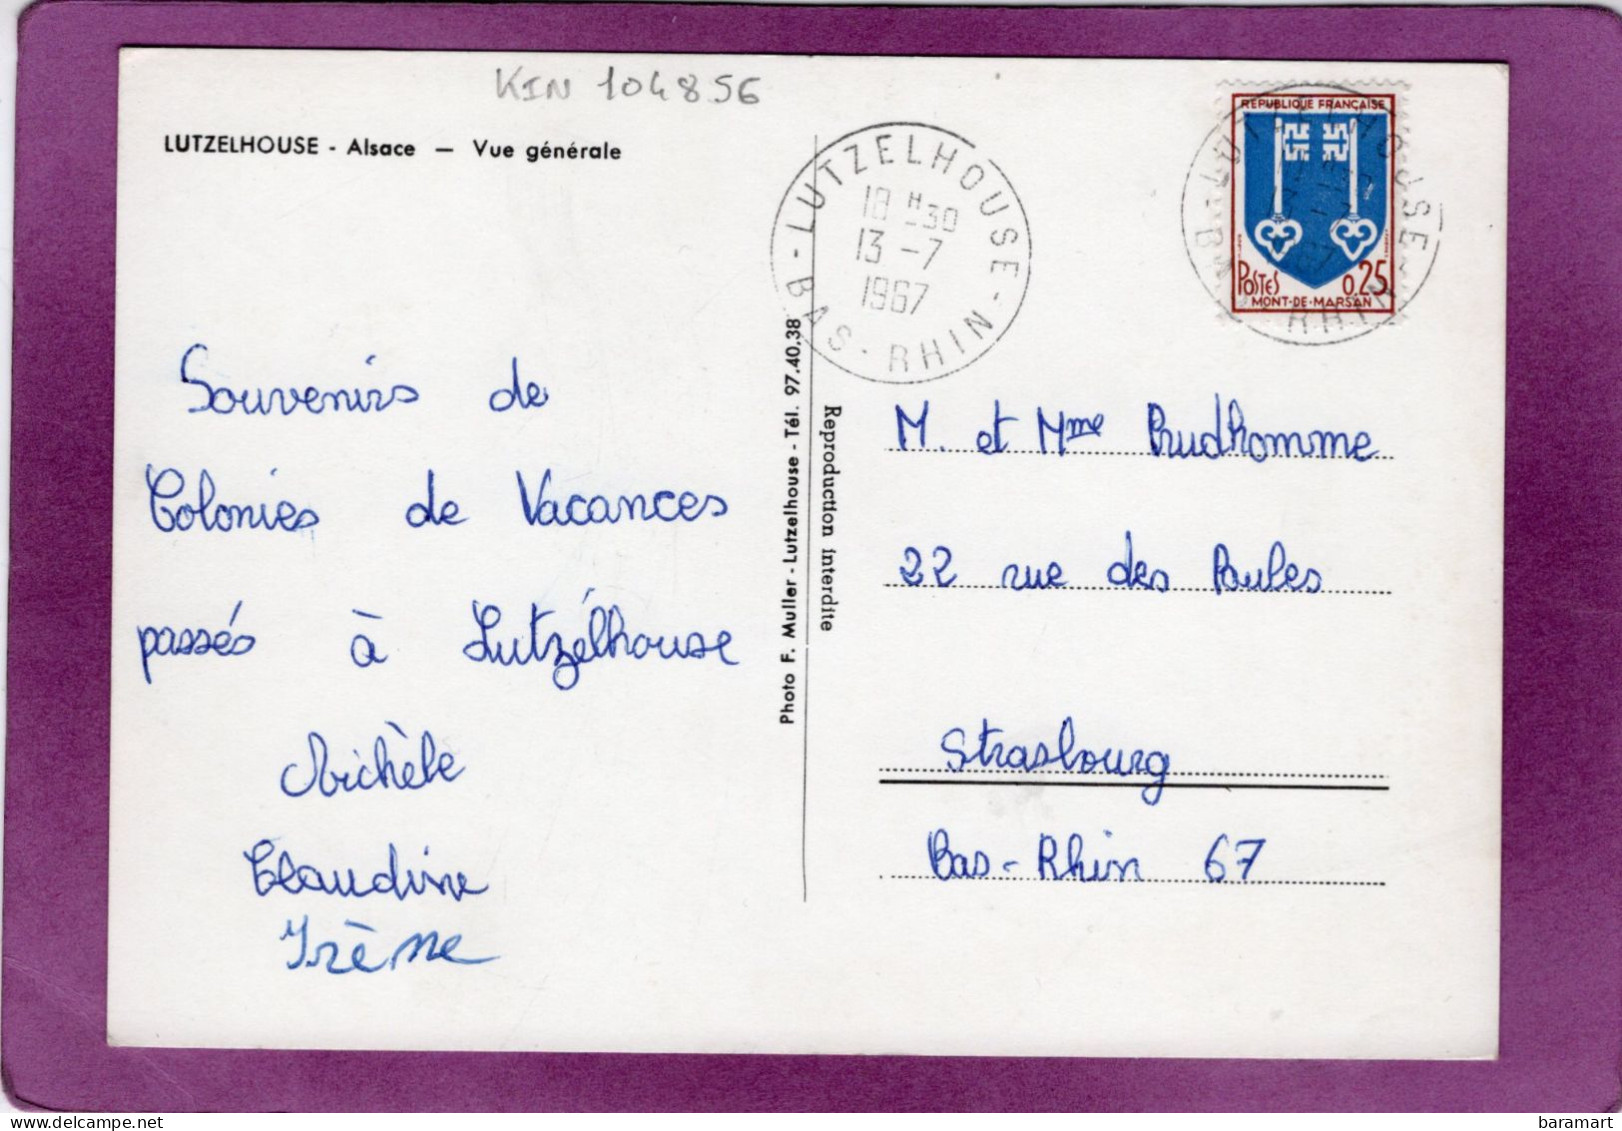 KIN 104856
LUTZELHOUSE - Alsace — Vue générale
Souvenirs de
Colonies de Vacances
passés à Lutzélhouse
Michèle
Claudine
Irène
Photo F. Muller - Lutzelhouse - Tél. 97.40.38
Reproduction interdite
LUTZELHOUSE
18 H 30
13 - 7
1967
BAS - RHIN
REPUBLIQUE FRANÇAISE
POSTES 0,25
MONT-DE-MARSAN
M. et Mme Prudhomme
22 rue des Poules
Strasbourg
Bas-Rhin 67
baramart